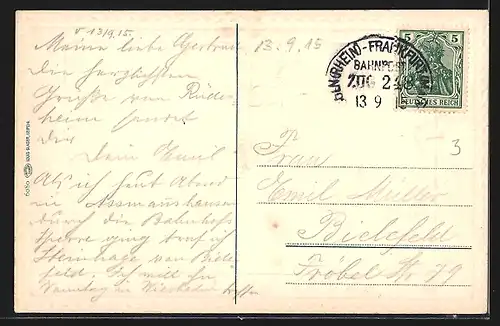 v 13/9.15.
Meine liebe Gertrud
die herzlichsten
Grüße von Rüdes-
heim sendet
dir
Dein Emil
Als ich heut Abend
in Assmannshausen
durch die Bahnhofs
sperre ging traf ich
Steinhage von Biele
feld. Ich will ihn
in Wiesbaden treffen
13.9.15
(RHEIN)-FRANKFURT
BAHNPOST
ZUG 2
13 9
5 5
DEUTSCHES REICH
3
Frau
Emil Müller
Bielefeld
Fröbel Str. 79